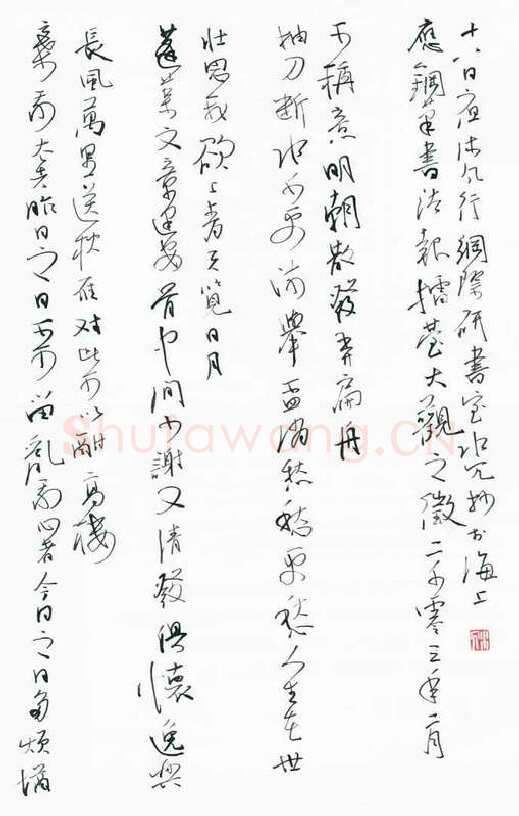 棄我去者昨日之日不可留亂我心者今日之日多煩憂
長風萬里送秋雁对此可以酣高樓
蓬萊文章建安骨中间小謝又清發俱懷逸興
壯思飛欲上青天覽日月
抽刀断水水更流舉盃消愁愁更愁人生在世
不稱意明朝散發弄扁舟
應鋼筆書法報擂臺大觀之徵二千零三年二月
十八日夜沐风行網際研書室抄於海上
Shufawang.CN